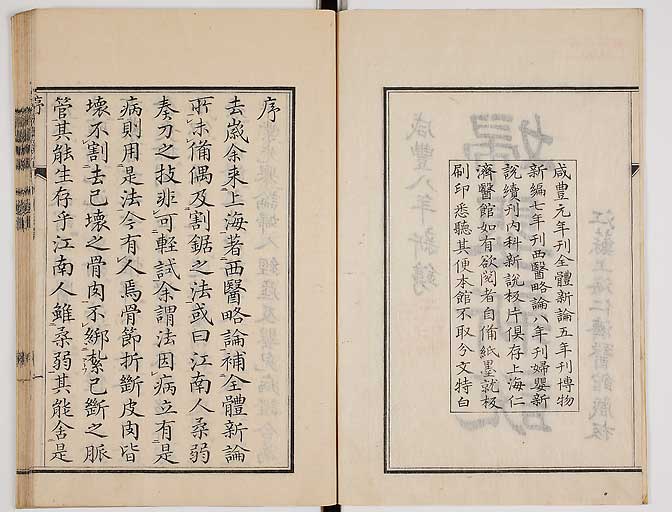 咸豐元年刊全體新論五年刊博物
新編七年刊西醫略論八年刊婦嬰新
說續刊內科新說板片俱存上海仁
濟醫館如有欲閱者自備紙墨就板
刷印悉聽其便本館不取分文特白
江蘇上海仁濟醫館藏板
咸豐八年新鐫
序
去歲余來上海著西醫略論補全體新論
所未備偶及割鋸之法或曰江南人柔弱
奏刀之技非可輕試余謂法因病立有是
病則用是法今有人焉骨節折斷皮肉皆
壞不割去已壞之骨肉不綁紮已斷之脈
管其能生存乎江南人雖柔弱其能舍是
序
一